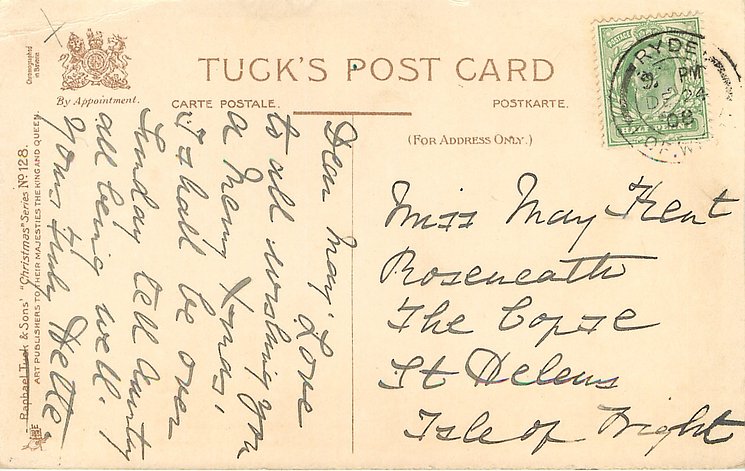 TUCK'S POST CARD
By Appointment.
CARTE POSTALE.
POSTKARTE.
(FOR ADDRESS ONLY.)
Chromographed
in Britain
Raphael Tuck & Sons' "Christmas" Series No 128.
ART PUBLISHERS TO THEIR MAJESTIES THE KING AND QUEEN.
RYDE
PM
DE 24
08
I. OF. W
POSTAGE
HALFPENNY
Dear May. Love
to all wishing you
a Merry Xmas,
I shall be over
Sunday tell Aunty
all being well.
Yours truly
Miss May Kent
Roseneath
The Copse
St Helens
Isle of Wight